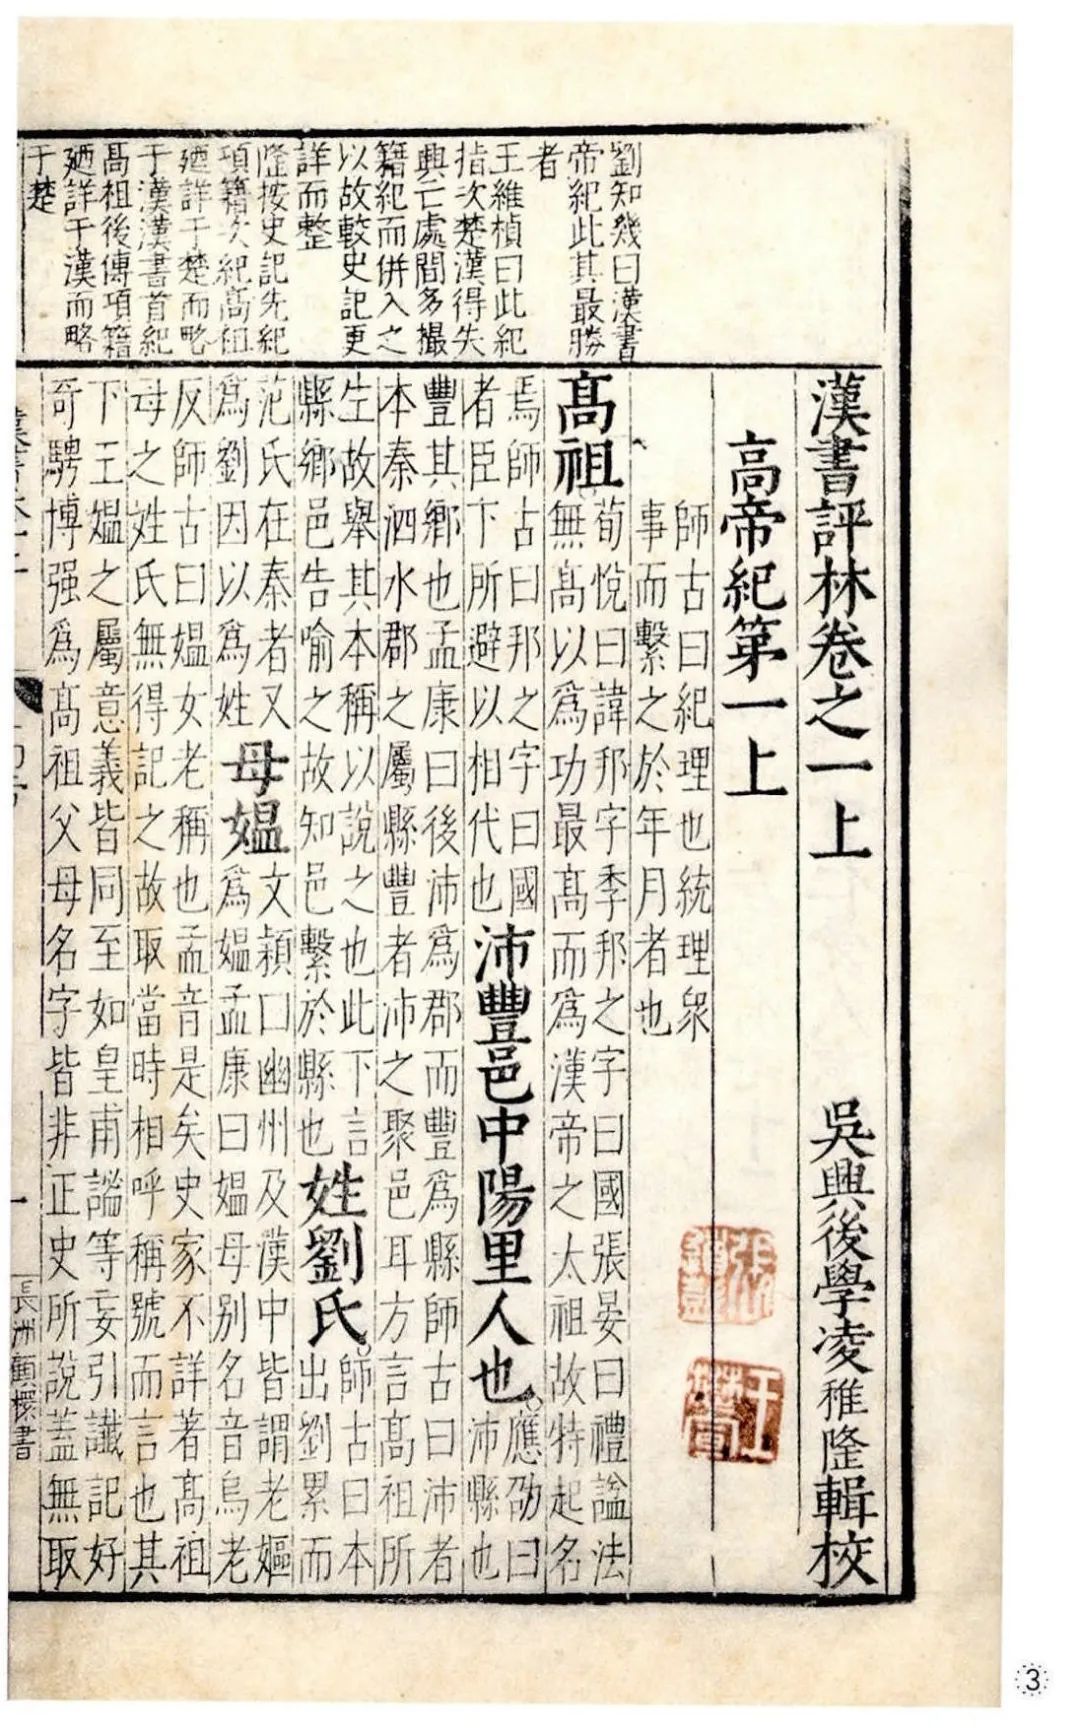 劉知幾曰漢書
帝紀此其最勝
者
王維楨曰此紀
指次楚漢得失
興亡處間多撮
籍紀而併入之
以故較史記更
詳而整
隆按史記先紀
項籍次紀髙祖
廼詳于楚而略
于漢漢書首紀
髙祖後傳項籍
廼詳于漢而略
于楚
漢書評林卷之一上
吳興後學凌稚隆輯校
高帝紀第一上
師古曰紀理也統理衆
事而繫之於年月者也
髙祖
荀悅曰諱邦字季邦之字曰國張晏曰禮謚法
無髙以爲功最髙而爲漢帝之太祖故特起名
焉師古曰邦之字曰國
者臣下所避以相代也
沛豐邑中陽里人也。
應劭曰
沛縣也
豐其鄉也孟康曰後沛爲郡而豐爲縣師古曰沛者
本秦泗水郡之屬縣豐者沛之聚邑耳方言髙祖所
生故舉其本稱以說之也此下言
縣鄉邑告喻之故知邑繫於縣也
姓劉氏。
師古曰本
出劉累而
范氏在秦者又
爲劉因以爲姓
母媼
文穎曰幽州及漢中皆謂老嫗
爲媼孟康曰媼母别名音烏老
反師古曰媼女老稱也孟音是矣史家不詳著髙祖
母之姓氏無得記之故取當時相呼稱號而言也其
下王媼之屬意義皆同至如皇甫謐等妄引讖記好
奇騁博强爲髙祖父母名字皆非正史所說蓋無取
一
長洲顧櫰書
3